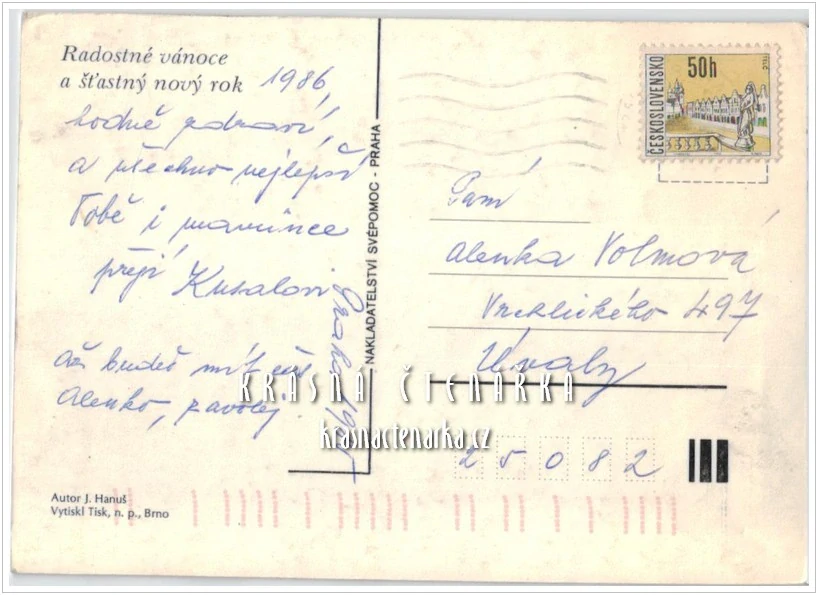 Radostné vánoce
a šťastný nový rok 1986,
hodně zdraví,
a všechno nejlepší
Tobě i mamince
přejí Kusalovi
Až budeš mít čas
Alenko, zavolej.
Praha 1985
Autor J. Hanuš
Vytiskl Tisk, n. p., Brno
NAKLADATELSTVÍ SVÉPOMOC - PRAHA
ČESKOSLOVENSKO
50h
TELČ
Paní
Alenka Volmová
Vrchlického 497
Úvaly
25082
KRÁSNÁ ČTENÁŘKA
krasnactenarka.cz